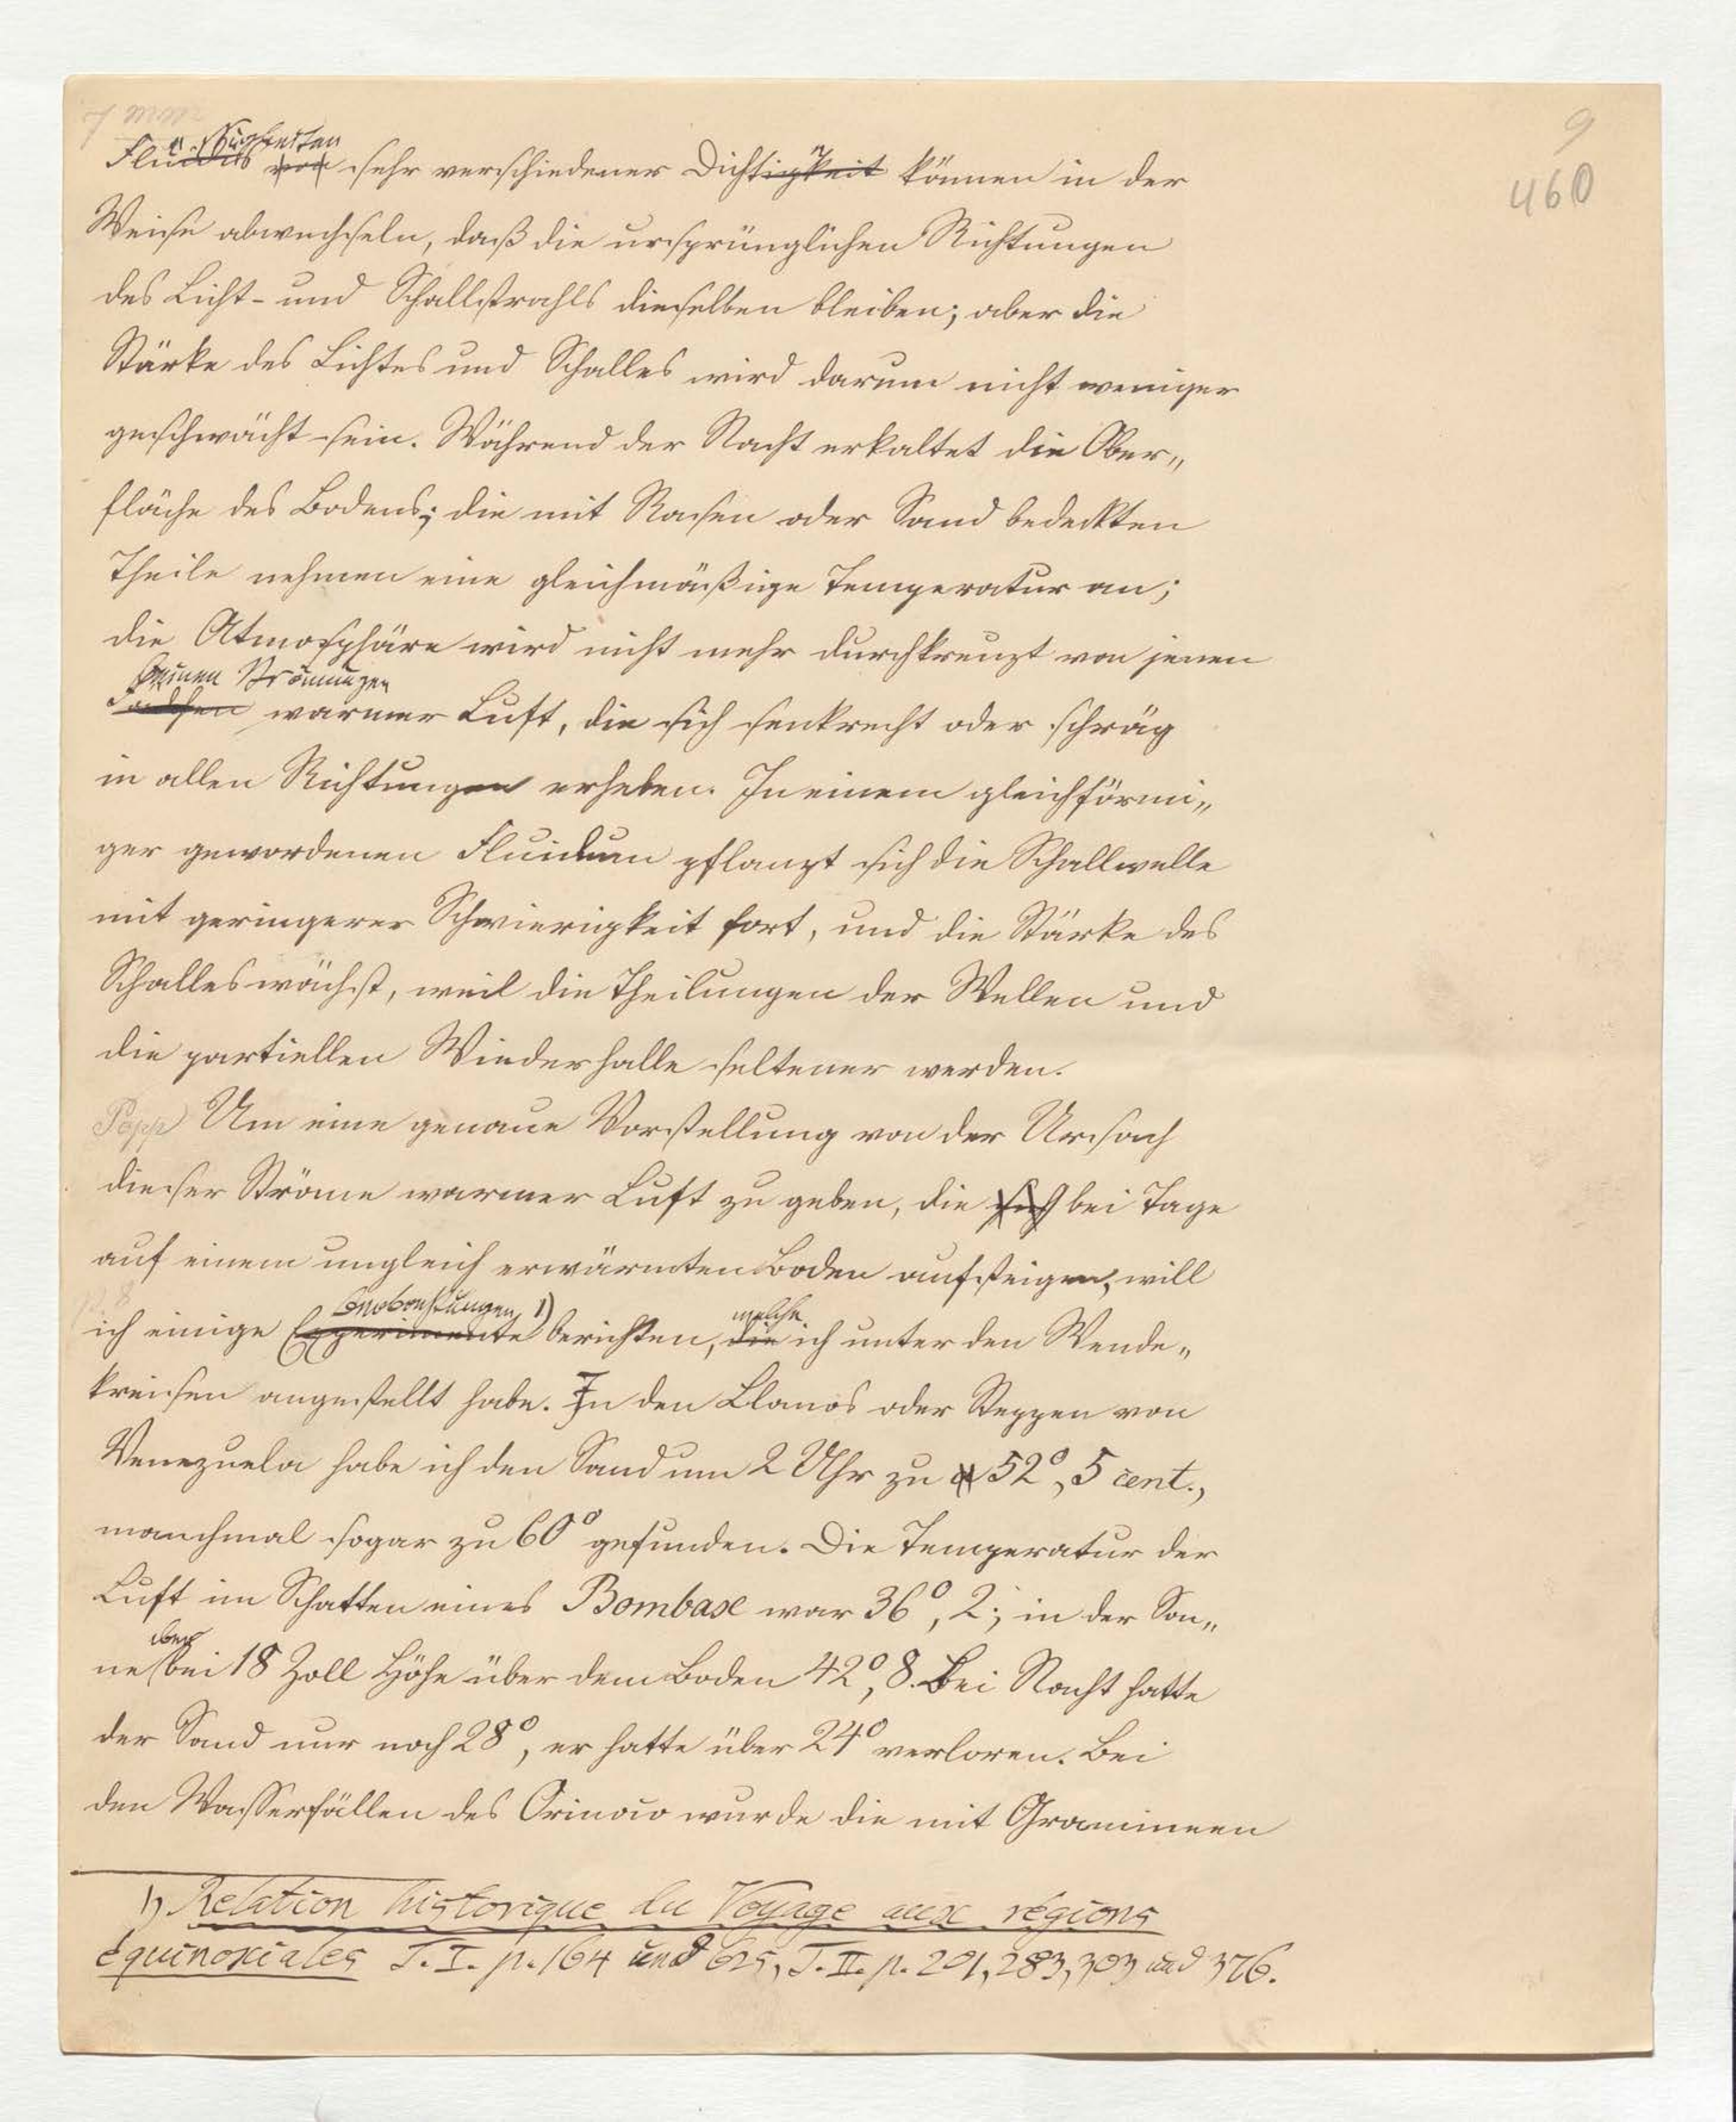 9
460
Flüssigkeiten sehr verschiedener Dichtigkeit können in der
Weise abwechseln, daß die ursprünglichen Richtungen
des Licht- und Schallstrahls dieselben bleiben; aber die
Stärke des Lichtes und Schalles wird darum nicht weniger
geschwächt sein. Während der Nacht erkaltet die Ober„
fläche des Bodens; die mit Rasen oder Sand bedeckten
Theile nehmen eine gleichmäßige Temperatur an;
die Atmosphäre wird nicht mehr durchkreuzt von jenen
kleinen Strömungen
warmer Luft, die sich senkrecht oder schräg
in allen Richtungen erheben. In einem gleichförmi„
ger gewordenen Fluidum pflanzt sich die Schallwelle
mit geringerer Schwierigkeit fort, und die Stärke des
Schalles wächst, weil die Theilungen der Wellen und
die partiellen Wiederhalle seltener werden.
Popp Um eine genaue Vorstellung von der Ursach
dieser Ströme warmer Luft zu geben, die sich bei Tage
auf einem ungleich erwärmten Boden aufsteigen, will
Beobachtungen 1) welche
ich einige Experimente berichten, die ich unter den Wende„
kreisen angestellt habe. In den Llanos oder Steppen von
Venezuela habe ich den Sand um 2 Uhr zu 52°,5 cent.,
manchmal sogar zu 60° gefunden. Die Temperatur der
Luft im Schatten eines Bombax war 36°,2; in der Son„
aber
ne bei 18 Zoll Höhe über dem Boden 42°,8. Bei Nacht hatte
der Sand nur noch 28°, er hatte über 24° verloren. Bei
den Wasserfällen des Orinoco wurde die mit Gramineen
1) Relation historique du Voyage aux régions
équinoxiales T. I. p. 164 und 625, T. II. p. 201, 283, 303 und 376.